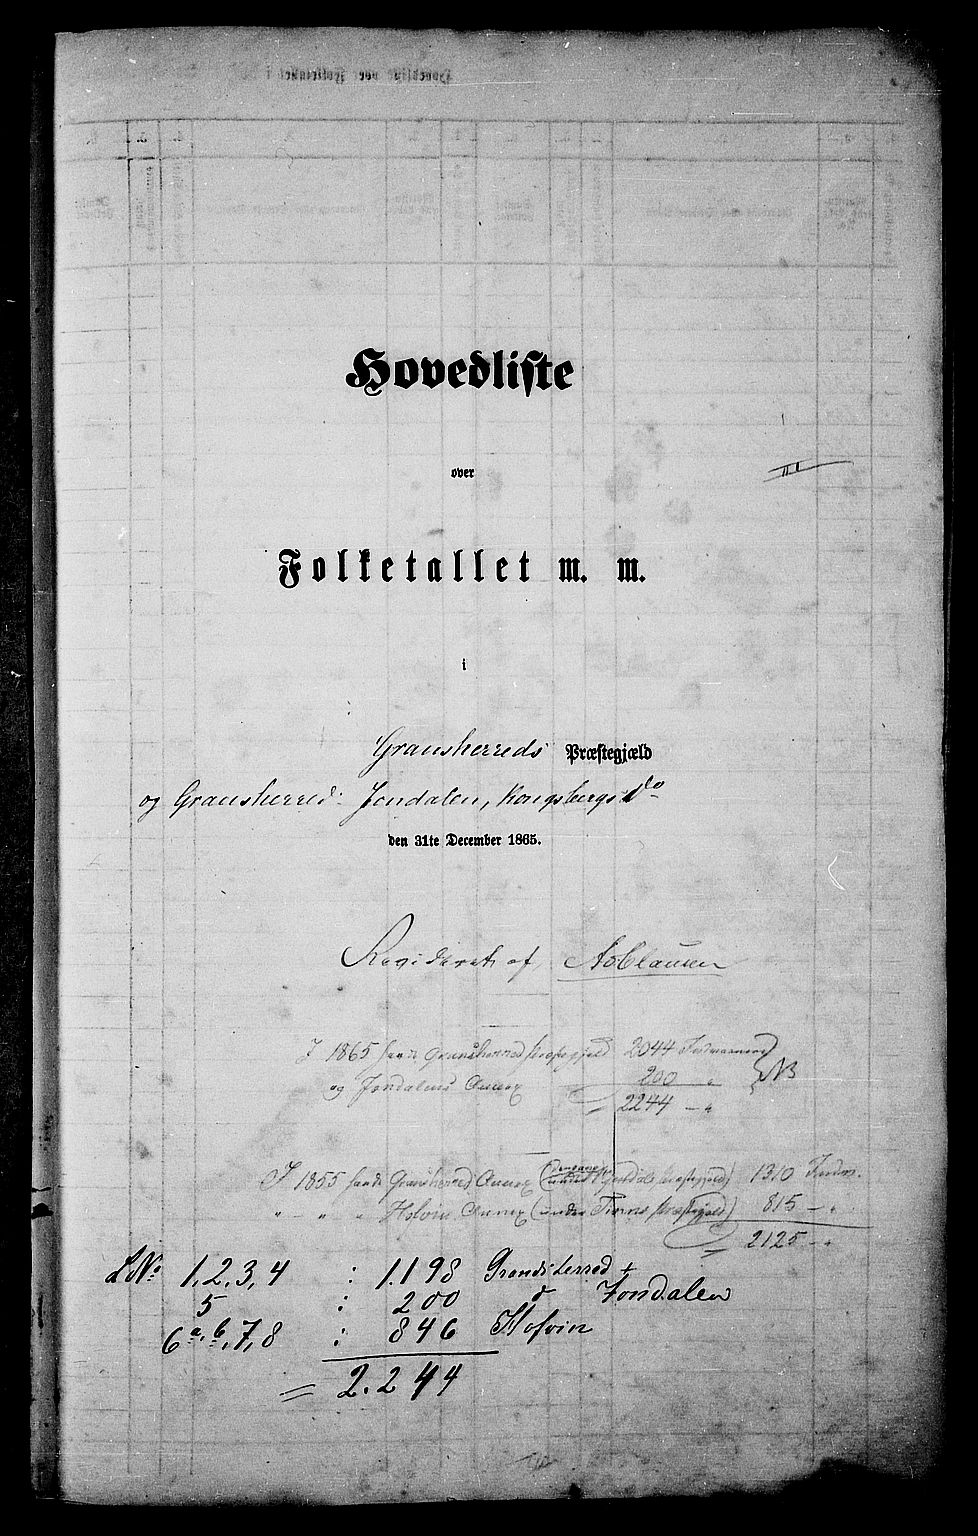 Hovedliste
over
III
Folketallet m. m.
i
Gransherreds Præstegjæld
og Gransherred Jondalen, Kongsbergs do
den 31te December 1865.
Revideret af AsClausen
I 1865 havde Gransherred Præstegjæld 2044 Indvaanere
og Jondalens Annex 200 " NB
2244 — "
I 1855 havde Gransherred Annex (under Præstegjeld) 1310 Indv.
" — " " " Hovin Annex (under Tinns Præstegjeld) 815 — "
= 2125 — "
LNo 1, 2, 3, 4 : 1.198 Gransherred +
5 : 200 d Jondalen
6 a, b, 7, 8 : 846 Hofvin
= 2.244